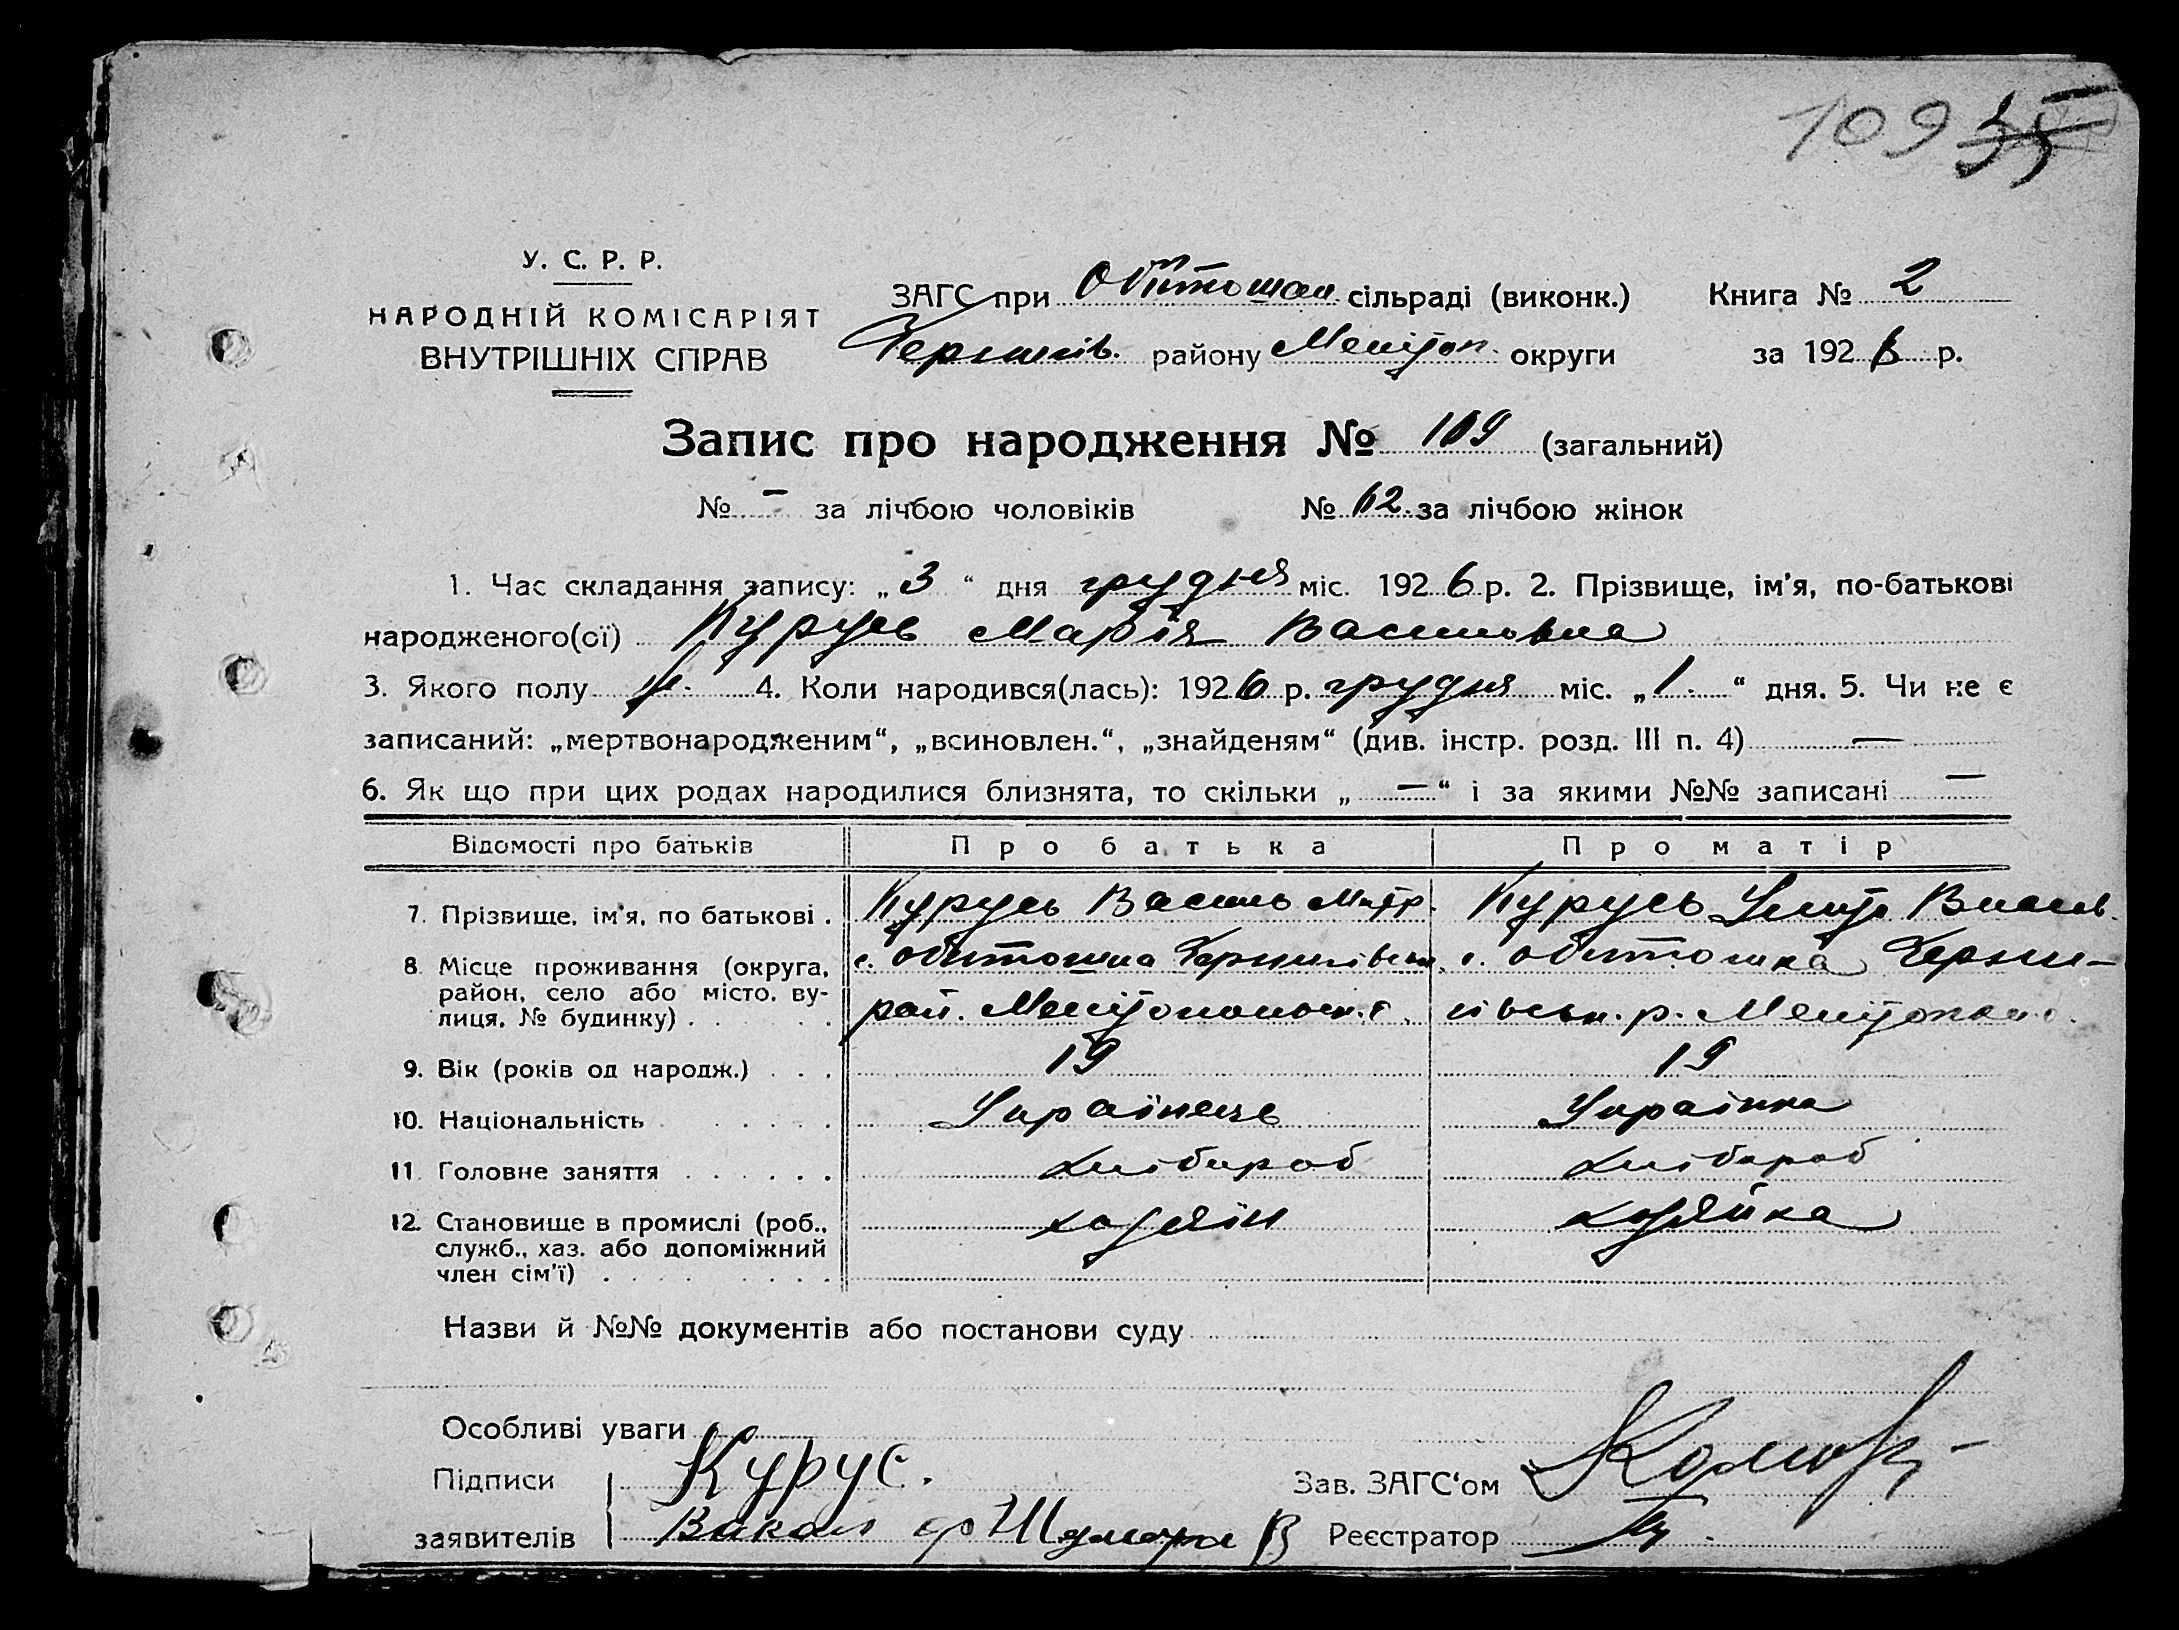 109 35
У. С. Р. Р.
НАРОДНІЙ КОМІСАРІЯТ
ВНУТРІШНІХ СПРАВ
ЗАГС при Обіточан. сільраді (виконк.) Книга № 2
Чернигів. району Меліт оп. округи за 192 6 р.
Запис про народження № 109 (загальний)
№ — за лічбою чоловіків № 62 за лічбою жінок
1. Час складання запису: „ 3 “ дня грудня міс. 192 6 р. 2. Прізвище, ім'я, по-батькові
народженого(ої) Курусь Марія Василовна
3. Якого полу ж. 4. Коли народився(лась): 192 6 р. грудня міс. „ 1 “ дня. 5. Чи не є
записаний: „мертвонародженим“, „всиновлен.“, „знайденям“ (див. інстр. розд. III п. 4) —
6. Як що при цих родах народилися близнята, то скільки „ — “ і за якими №№ записані —
Відомості про батьків Про батька Про матір
7. Прізвище, ім'я, по батькові . Курусь Василь Митр. Курусь Василь
8. Місце проживання (округа, район, село або місто, вулиця, № будинку) с. Обиточна рай. с. Обиточна р.
9. Вік (років од народж.) . . . 19 19
10. Національність . . . . . Українець Українка
11. Головне заняття . . . . . . Хлібороб Хлібороб
12. Становище в промислі (роб., служб., хаз. або допоміжний член сім'ї) . . . . . . . . . хозяїн хозяйка
Назви й №№ документів або постанови суду
Особливі уваги
Підписи Курус. Зав. ЗАГС'ом
заявителів Реєстратор